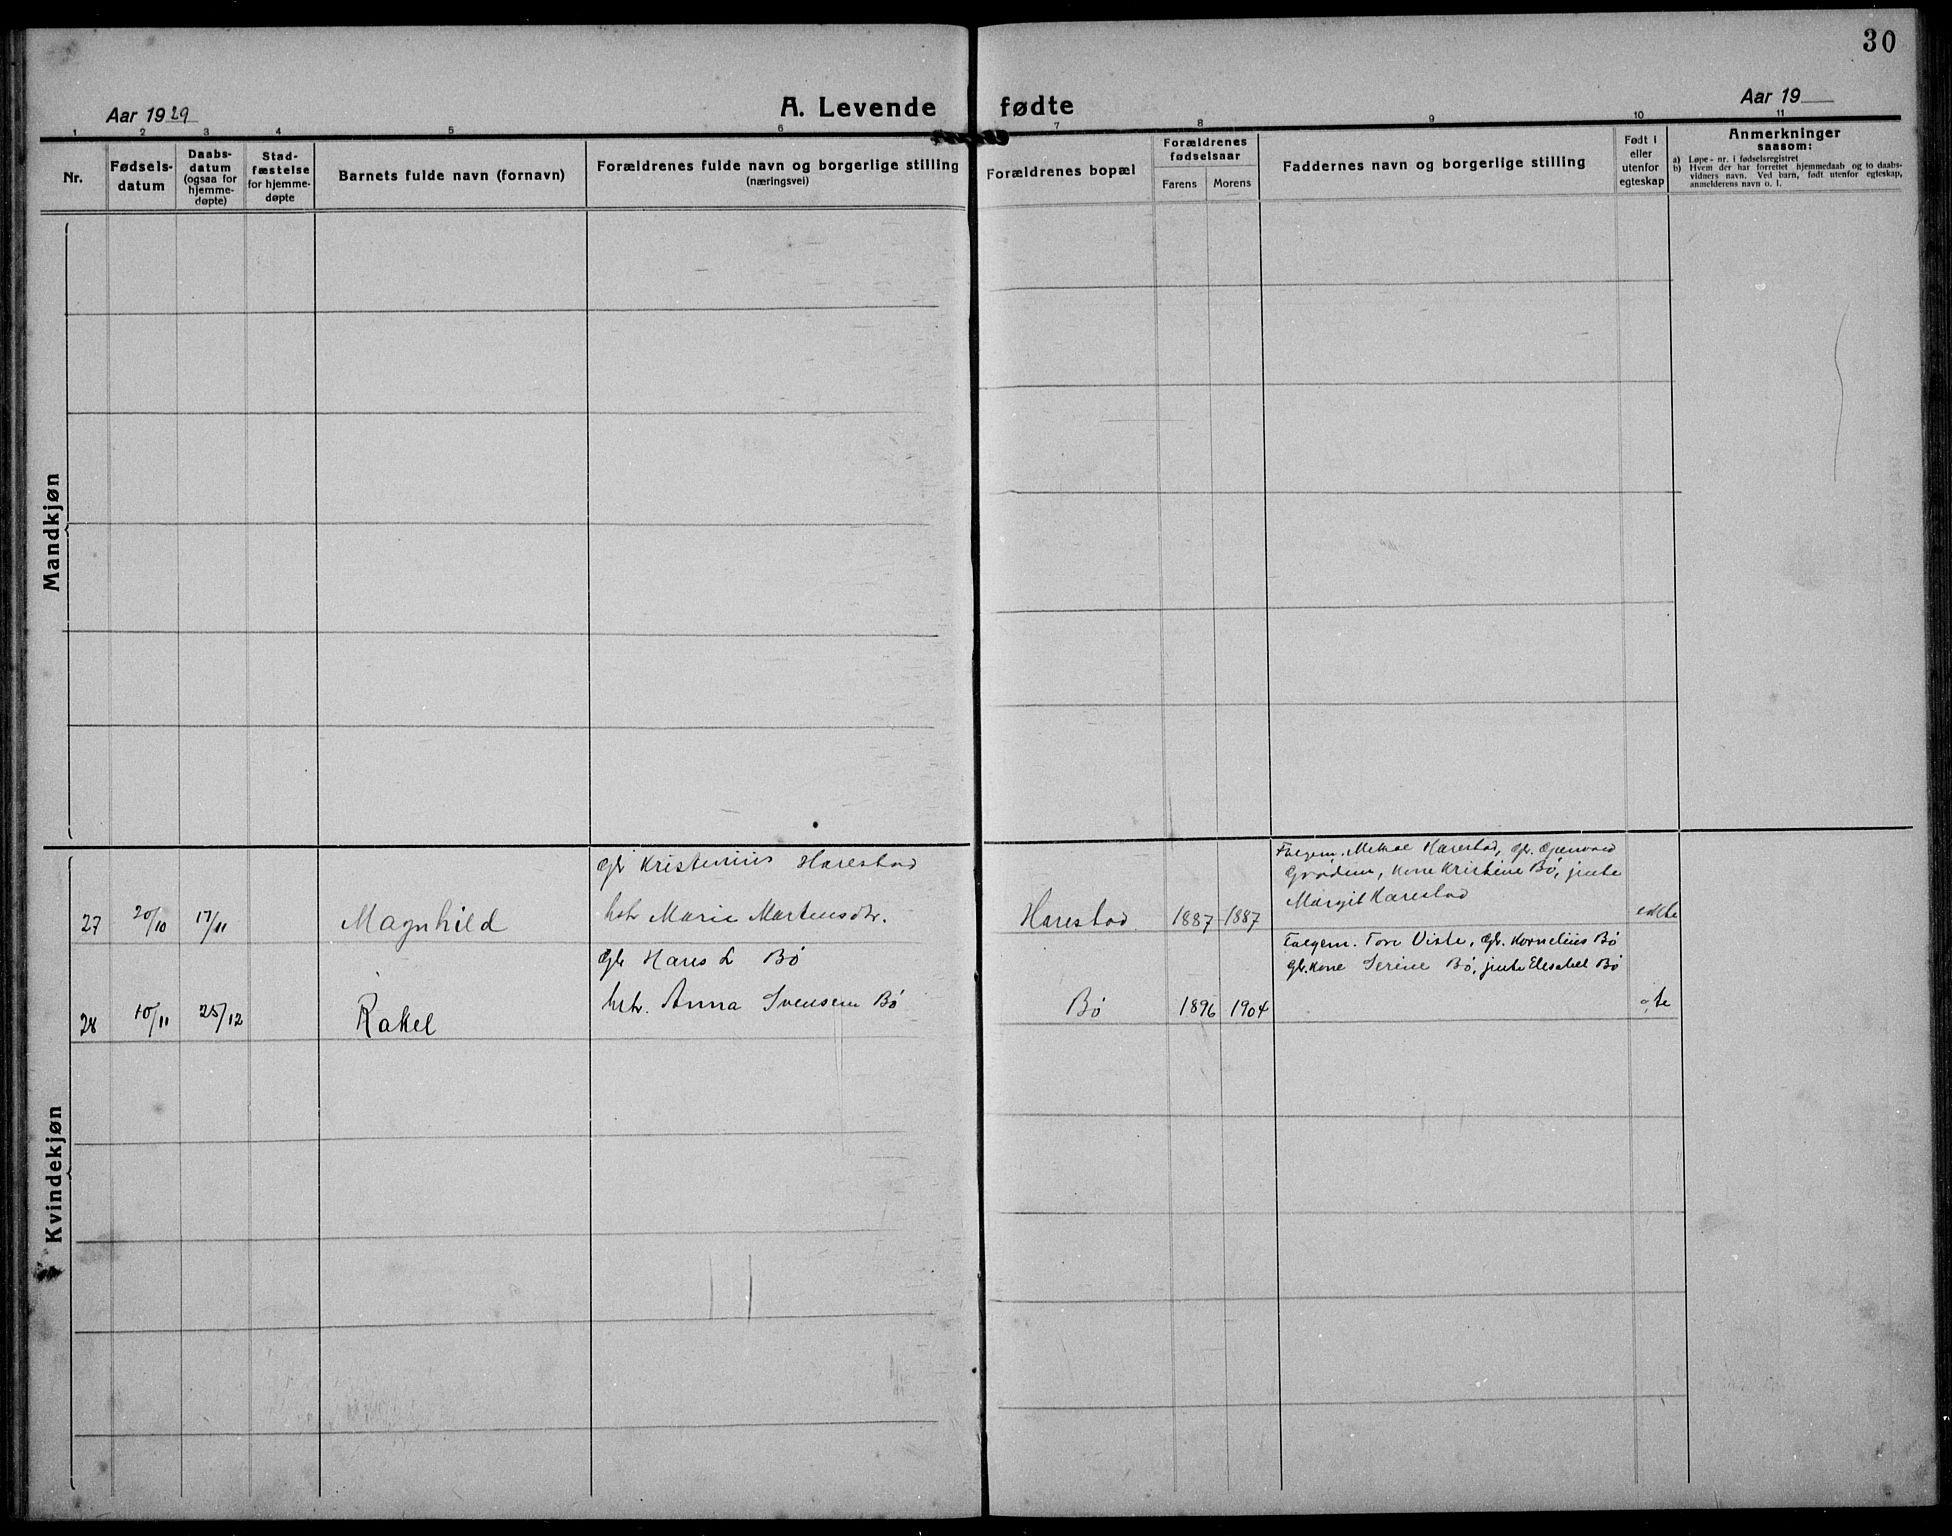 30
Aar 1929
A. Levende fødte
Aar 19
1 2 3 4 5 6 7 8 9 10 11
Nr.
Fødsels-
datum
Daabs-
datum
(ogsaa for
hjemme-
døpte)
Stad-
fæstelse
for hjemme-
døpte
Barnets fulde navn (fornavn)
Forældrenes fulde navn og borgerlige stilling
(næringsvei)
Forældrenes bopæl
Forældrenes
fødselsaar
Farens Morens
Faddernes navn og borgerlige stilling
Født i
eller
utenfor
egteskap
Anmerkninger
saasom:
a) Løpe-nr. i fødselsregistret
b) Hvem der har forrettet hjemmedaab og to daabs-
vidners navn. Ved barn, født utenfor egteskap,
anmelderens navn o. l.
Mandkjøn
Kvindekjøn
27 20/10 17/11 Magnhild
gbr Kristenius Harestad
hstr Marie Martensdtr.
Harestad 1887 1887
Harestad, gbr.
kone Kristine Bø, jente
Margit Harestad
egte
28 10/11 25/12 Rakel
gbr Hans L Bø
hstr. Anna Svensen Bø
Bø 1896 1904
Tore Viste, gbr. Kornelius Bø
gbr.kone Serine Bø, jente Elisabet Bø